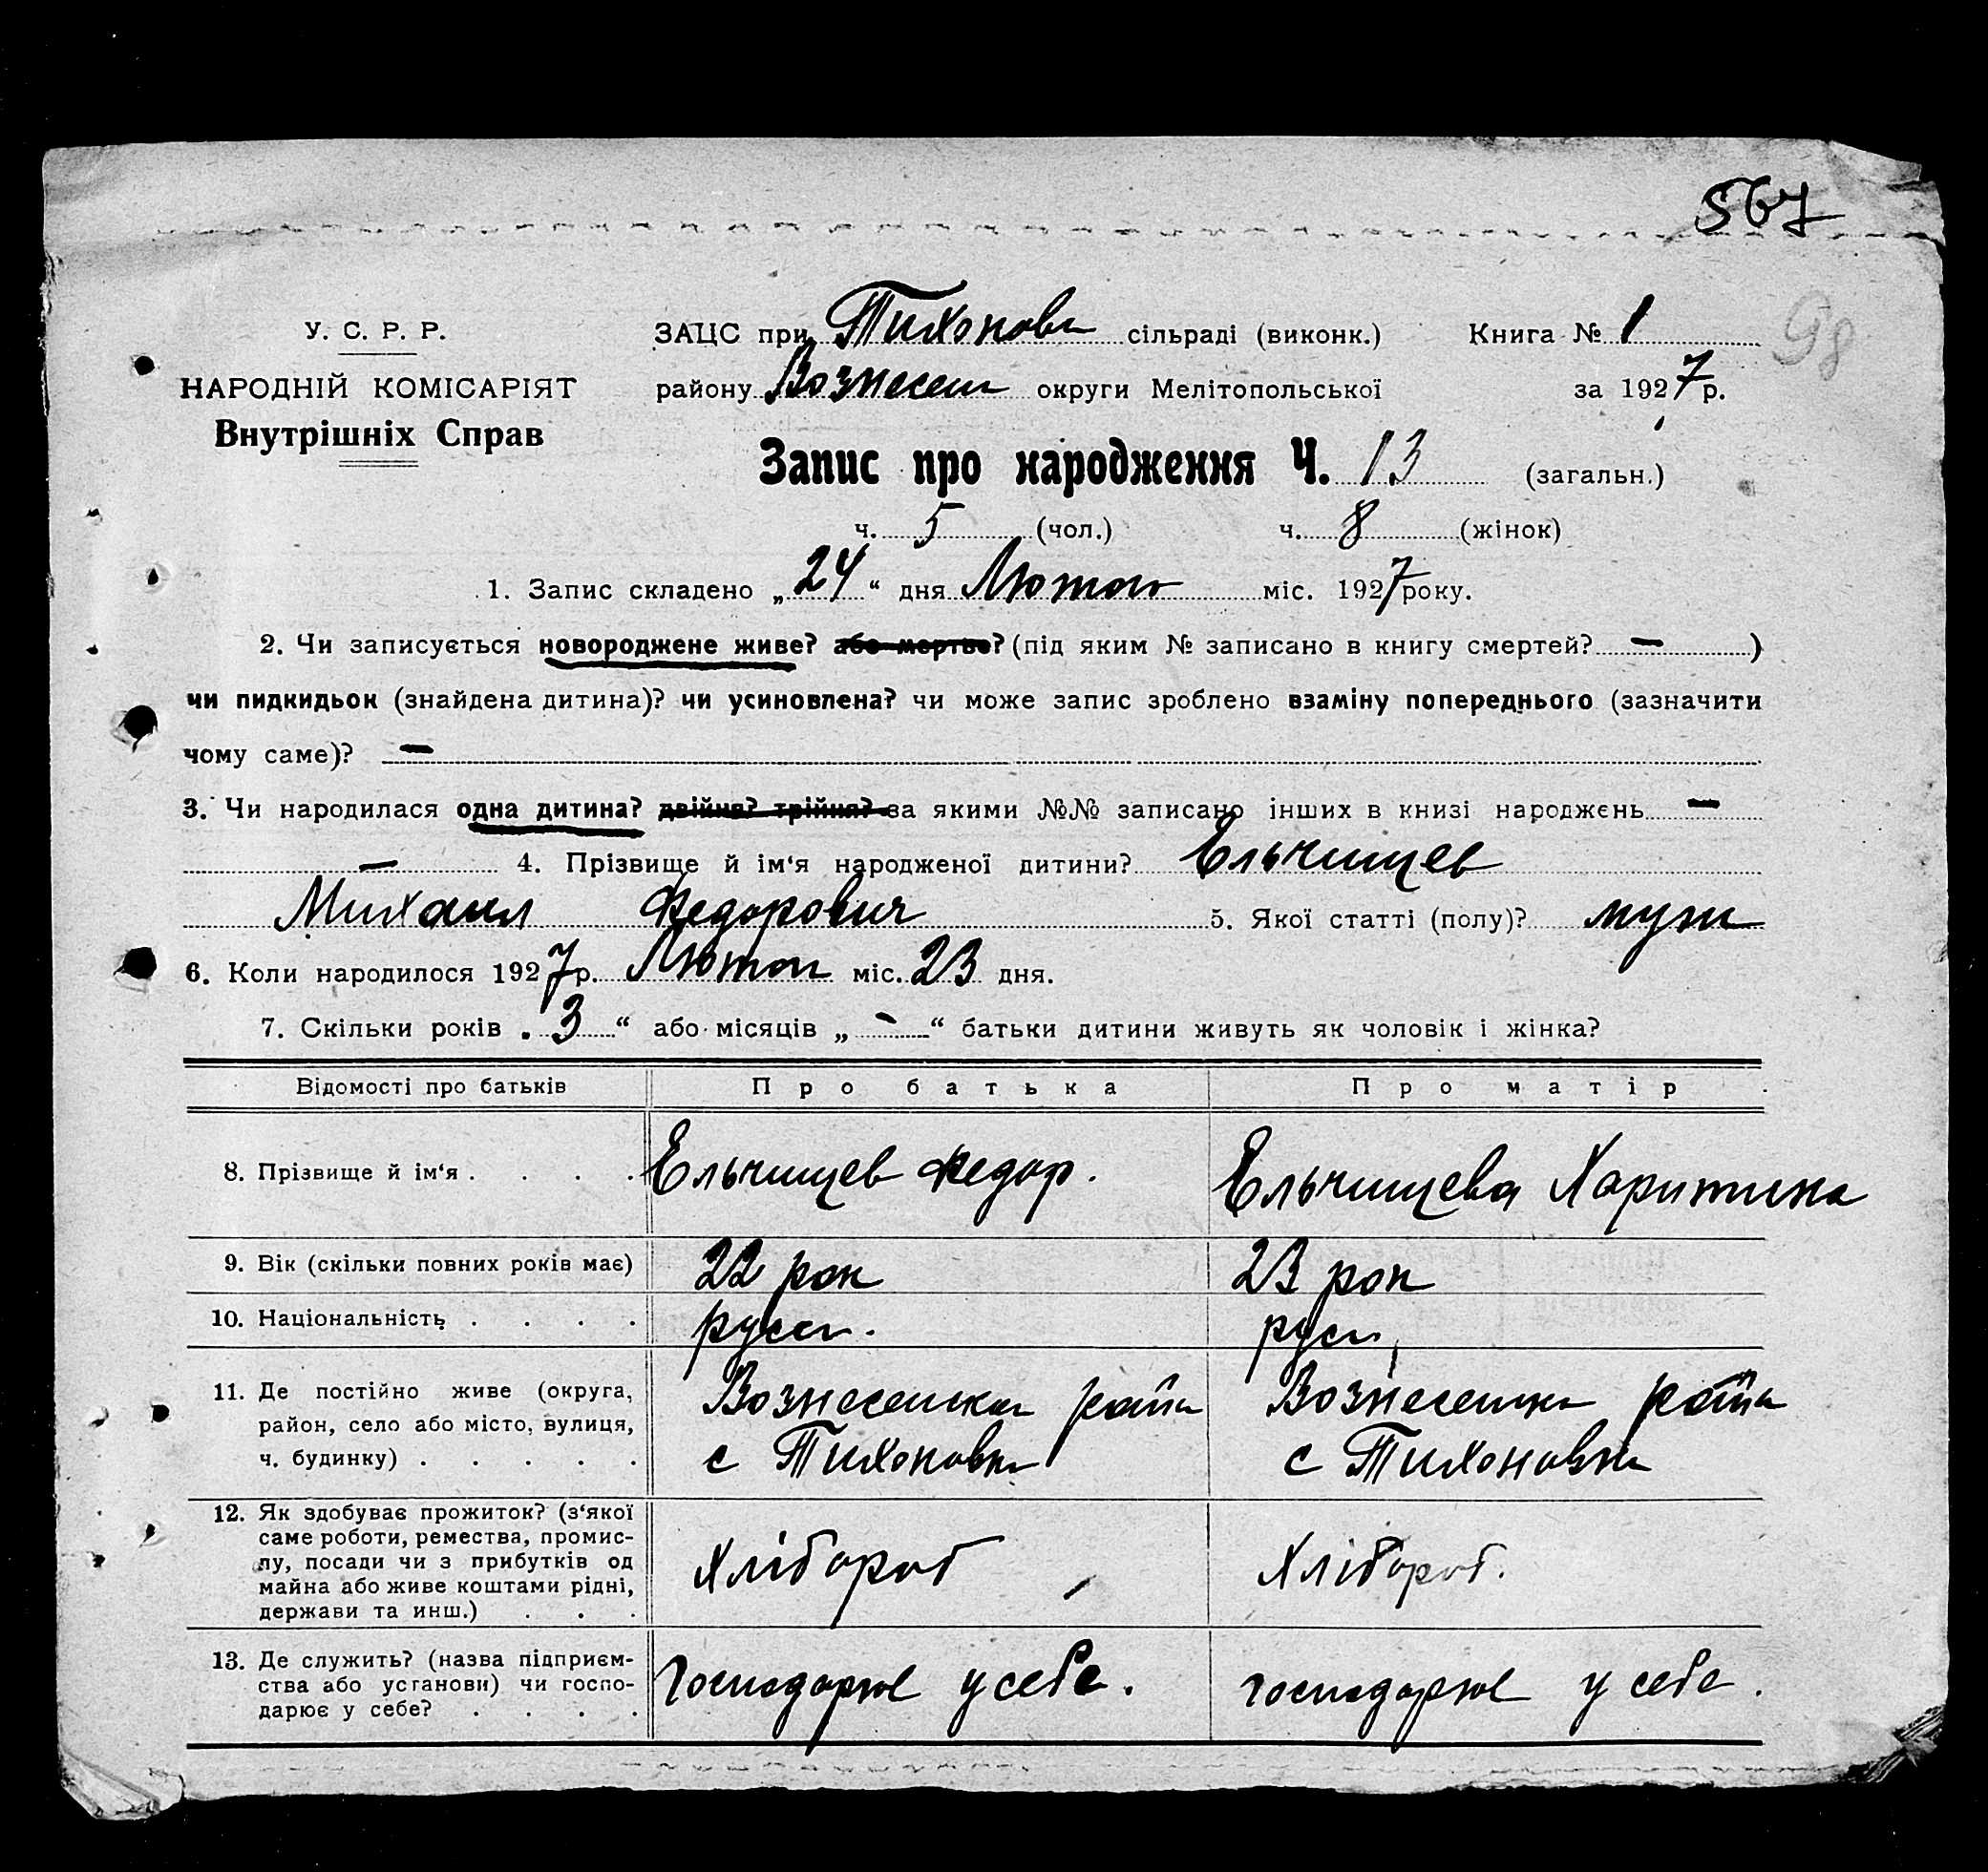 567
98
У. С. Р. Р.
ЗАЦС при Тихонов сільраді (виконк.) Книга № 1
НАРОДНІЙ КОМІСАРІЯТ
району Вознесен округи Мелітопольської за 1927 р.
Внутрішніх Справ
Запис про народження Ч. 13 (загальн.)
ч. 5 (чол.) ч. 8 (жінок)
1. Запис складено „24“ дня Лютого міс. 1927 року.
2. Чи записується новороджене живе? або мертве? (під яким № записано в книгу смертей? — )
чи пидкидьок (знайдена дитина)? чи усиновлена? чи може запис зроблено взаміну попереднього (зазначити
чому саме)? —
3. Чи народилася одна дитина? двійня? трійня? за якими №№ записано інших в книзі народжень —
— 4. Прізвище й ім‘я народженої дитини? Ельчищев
Михаил Федорович 5. Якої статті (полу)? муж
6. Коли народилося 1927 р. Лютого міс. 23 дня.
7. Скільки років „3“ або місяців „—“ батьки дитини живуть як чоловік і жінка?
Відомості про батьків Про батька Про матір
8. Прізвище й ім‘я . . . . Ельчищев Федор. Ельчищева Харитина
9. Вік (скільки повних років має) 22 рок 23 рок
10. Національність . . . . русск. руск
11. Де постійно живе (округа, Вознесенка район Вознесенка район
район, село або місто, вулиця,
ч. будинку) . . . . . с Тихоновка с Тихоновка
12. Як здобуває прожиток? (з‘якої
саме роботи, ремества, промис-
лу, посади чи з прибутків од Хлібороб Хлібороб.
майна або живе коштами рідні,
держави та инш.) . . .
13. Де служить? (назва підприєм-
ства або установи) чи госпо- Господарює у себе. господарює у себе.
дарює у себе? . . . .